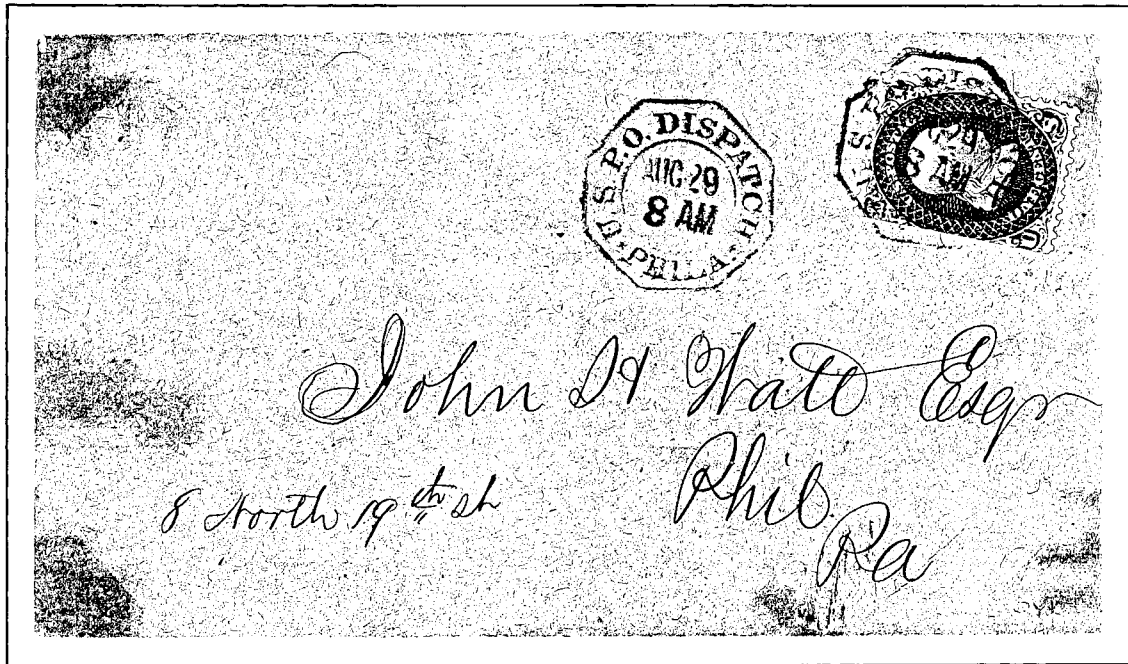 U.S. P.O. DISPATCH
AUG 29
8 AM
PHILA.
29
8 AM
John H Watt Esqr
8 North 19th St
Phil.
Pa